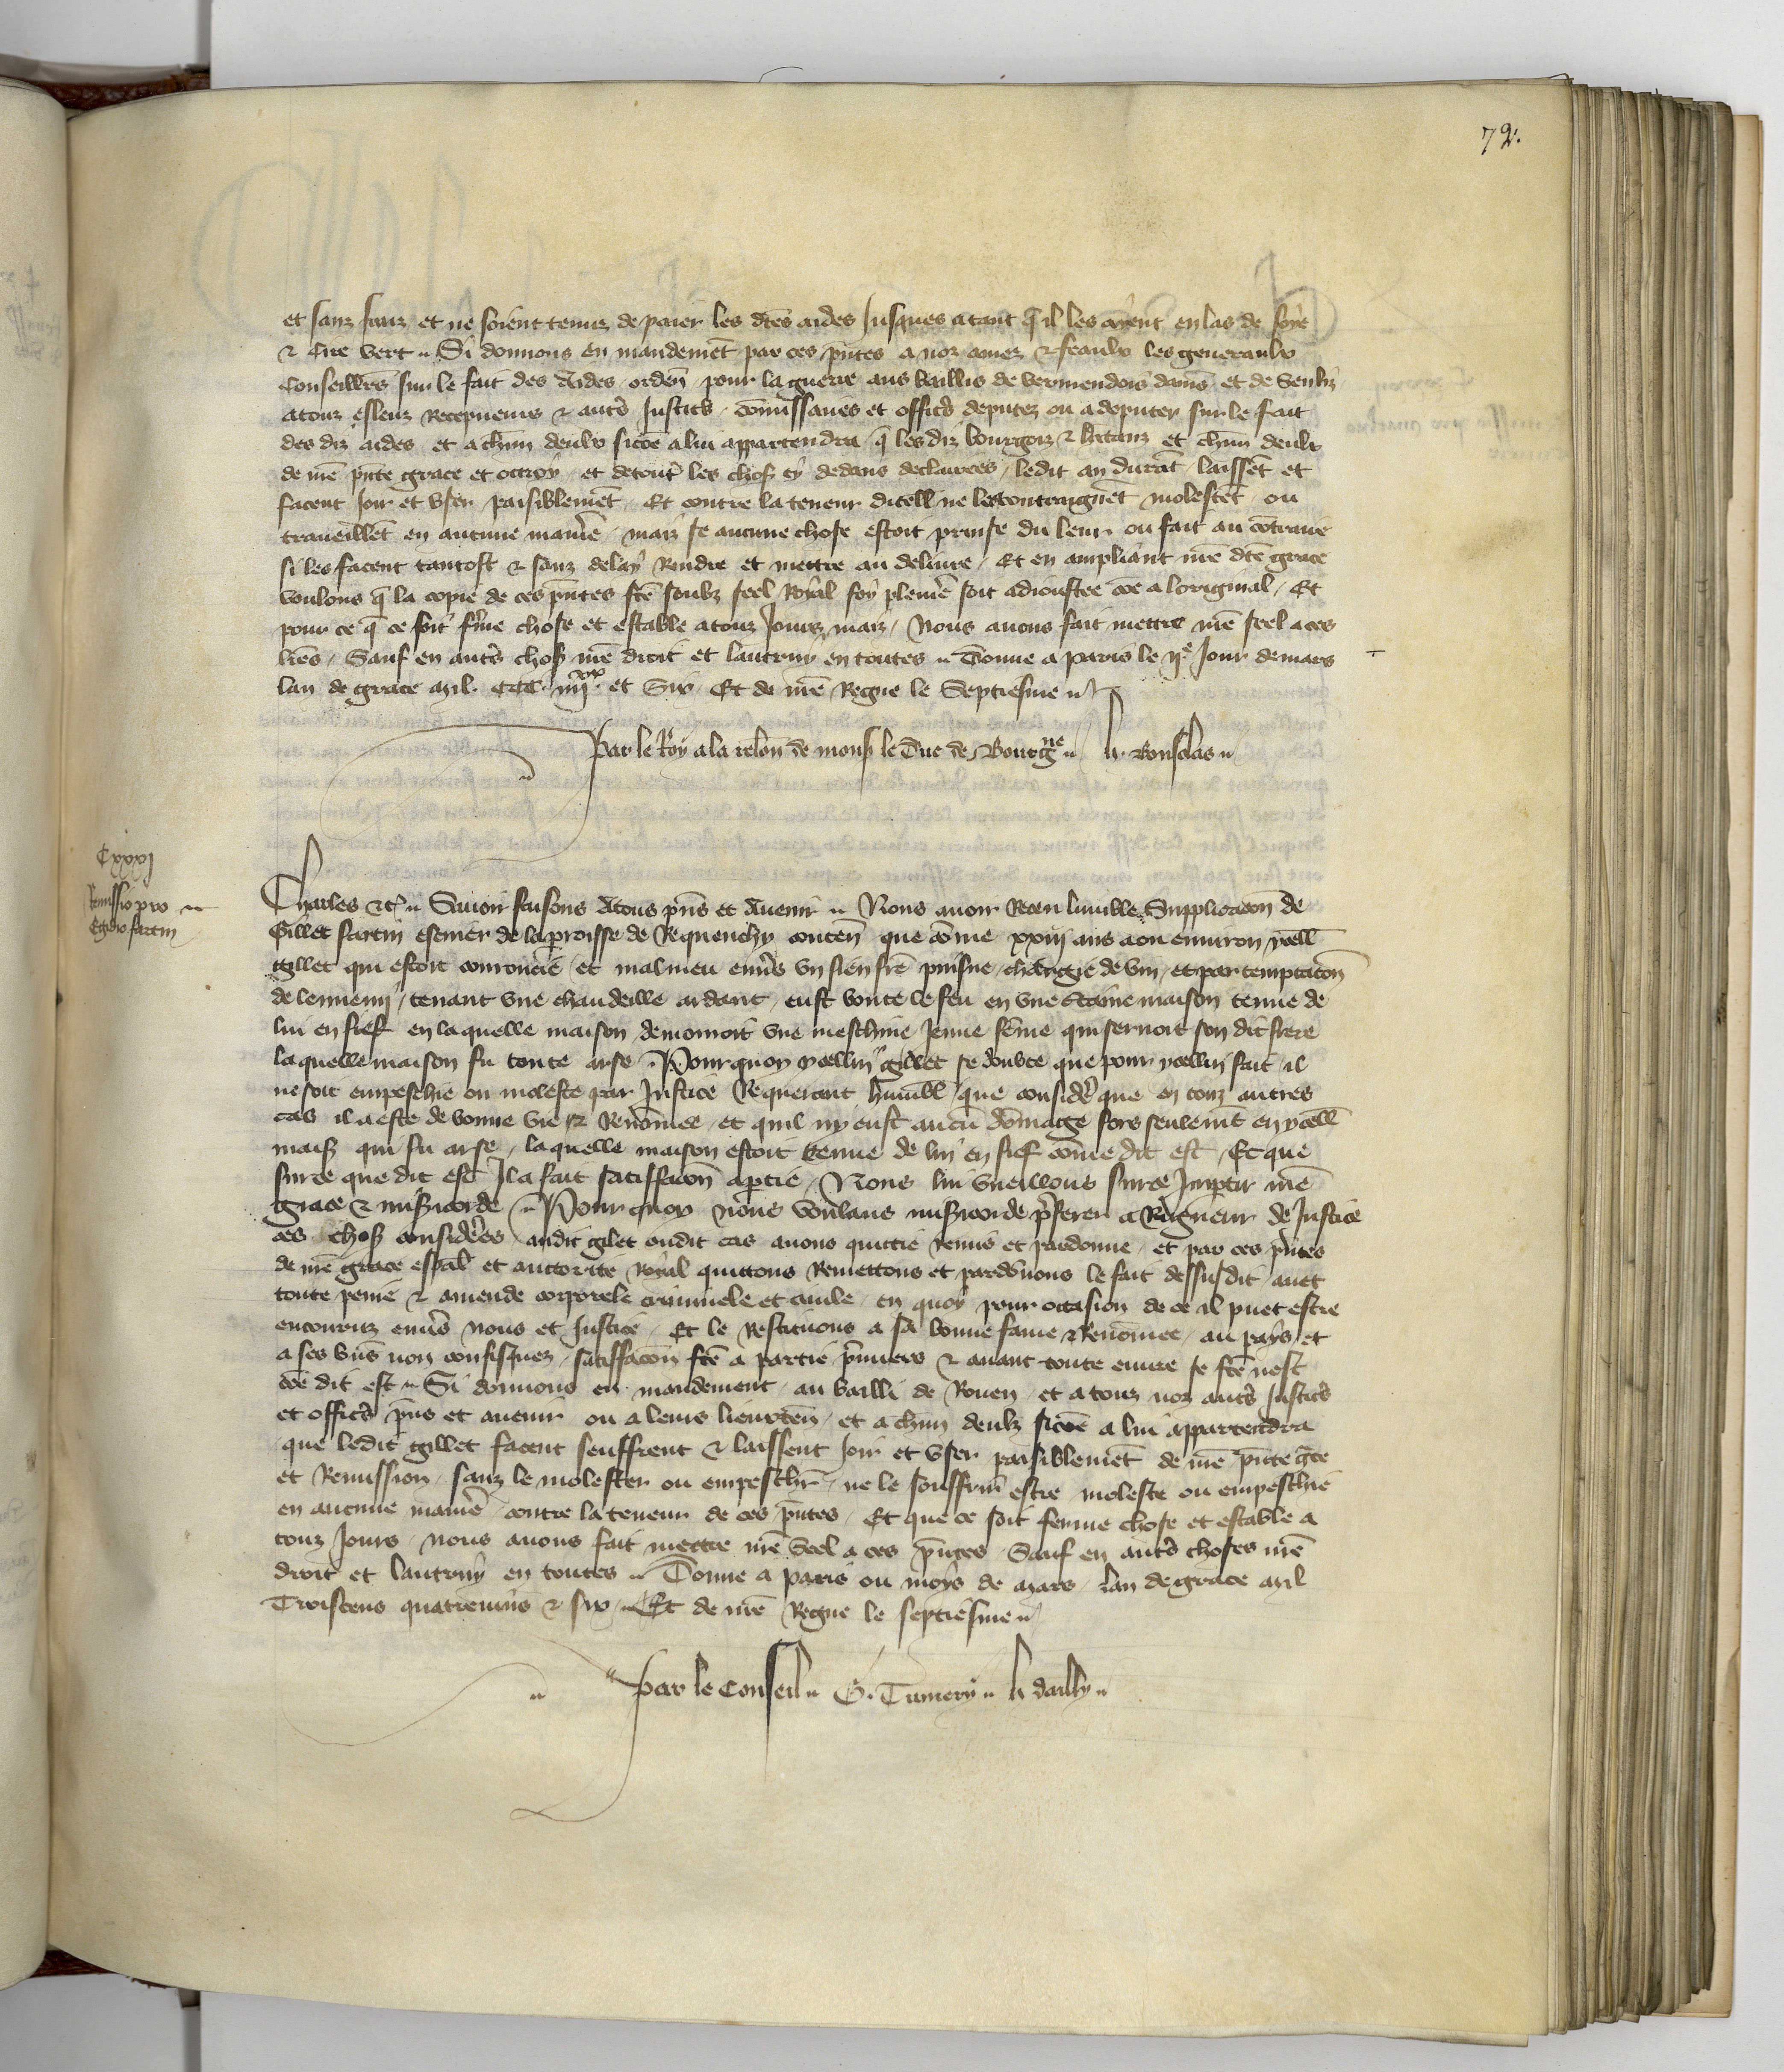 72.
et sanz saux et ne soient tenuz de paier les dctes aides Jusques a tant q il les ayent en las de soye
& Cire vert Si donnons en mandemet par ces pntes a noz amez & feaulx les generaulx
Conseillrs sur le fait des Aides orden pour la guerre aus baillis de vermendois damis et de Senliz
a touz esleuz Receveurs & autrs Justics comissaires et offics deputez ou a deputer sur le fait
des diz aides et a chun deulx sicoe a lui appartendra q les diz bourgois & htanz et chun deulx
de nre pnte grace et ottroy et de tout les chos cy dedans declairees ledit an durat laisset et
facent Joir et user paisiblemet Et contre la teneur dicell ne les contraignet molestet ou
traveillet en aucune maniē mais se aucune chose estoit prinse du leur ou fait au cōtraire
si les facent tantost & sanz delay Rendre et mettre au delivre Et en ampliant nre dcte grace
voulons q la copie de ces pntes fte soubz seel Royal foy plenie soit adioustee coe a loriginal Et
pour ce q ce soit fme chose et estable a touz Jours maiz Nous avons fait mettre nre seel a ces
lres Sauf en autrs chos nre droit et lautruy en toutes Donne a paris le ije Jour de mars
lan de grace mil CCC iiijxx et Six Et de nre Regne le Septiesme
Par le Roy a la relon de mons le Duc de Bourgne h Bonsolas
Cxxxj
Remissio pro
Egidio fartin
Charles etc Savoir faisons A tous pns et Avenir Nous avoir Receu lumble Supplicacon de
Gillet fartin escuier de la proisse de Requenchy conten que come xxiij ans a ou environ ycell
gillet qui estoit courroucie et malmeu envs un sien fre puisne chargie de vin et par temptacon
de lennemi tenant une chandeille ardant eust boute le feu en une certaine maison tenue de
lui en fief en la quelle maison demouroit une meschine Jeune feme qui servoit son dit frere
la quelle maison fu toute arse Pour quoy ycellui gillet se doubte que pour ycellui fait il
ne soit empeschie ou moleste par Justice Requerant humbl que considere que en touz autres
cas il a este de bonne vie & Renomee et quil ny eust aucu domage fors seulemt en ycell
mais qui fu arse la quelle maison estoit tenue de lui en fief come dit est Et que
sur ce que dit est Il a fait satiffacon a ptie Nous lui vueillons sur ce Impter nre
grace & misicorde Pour quoy nous voulans misicorde pferer a Rigueur de Justice
ces chos considerees audit gilet oudit cas avons quittie remis et pardonne et par ces pntes
de nre grace espal et auctorite royal quittons Remettons et pardonnons le fait dessusdit avec
toute peine & amende corporele criminele et civile en quoy pour occasion de ce il puet estre
encouruz envs nous et Justice Et le Restituons a sa bonne fame & Renomee au pays et
a ses bns non confisquez satiffacon fte a partie pmiers & avant toute euvre se fte nest
coe dit est Si donnons en mandement au bailli de Rouen et a touz noz autrs Justics
et offics pns et avenir ou a leurs lieuxten et a chun deulz sicoe a lui appartendra
que ledit gillet facent seuffrent & laissent Joir et user paisiblemet de nre pnte gce
et Remission sanz le molester ou empeschr ne le souffrir estre moleste ou empeschie
en aucune manie contre la teneur de ces pntes Et que ce soit ferme chose et estable a
touz Jours nous avons fait mettre nre Seel a ces pntes Sauf en autrs choses nre
droit et lautruy en toutes Donne a paris ou moys de mars lan de grace mil
Troiscens quatrevins & six Et de nre Regne le septiesme
Par le Conseil G. Tumery h dailly